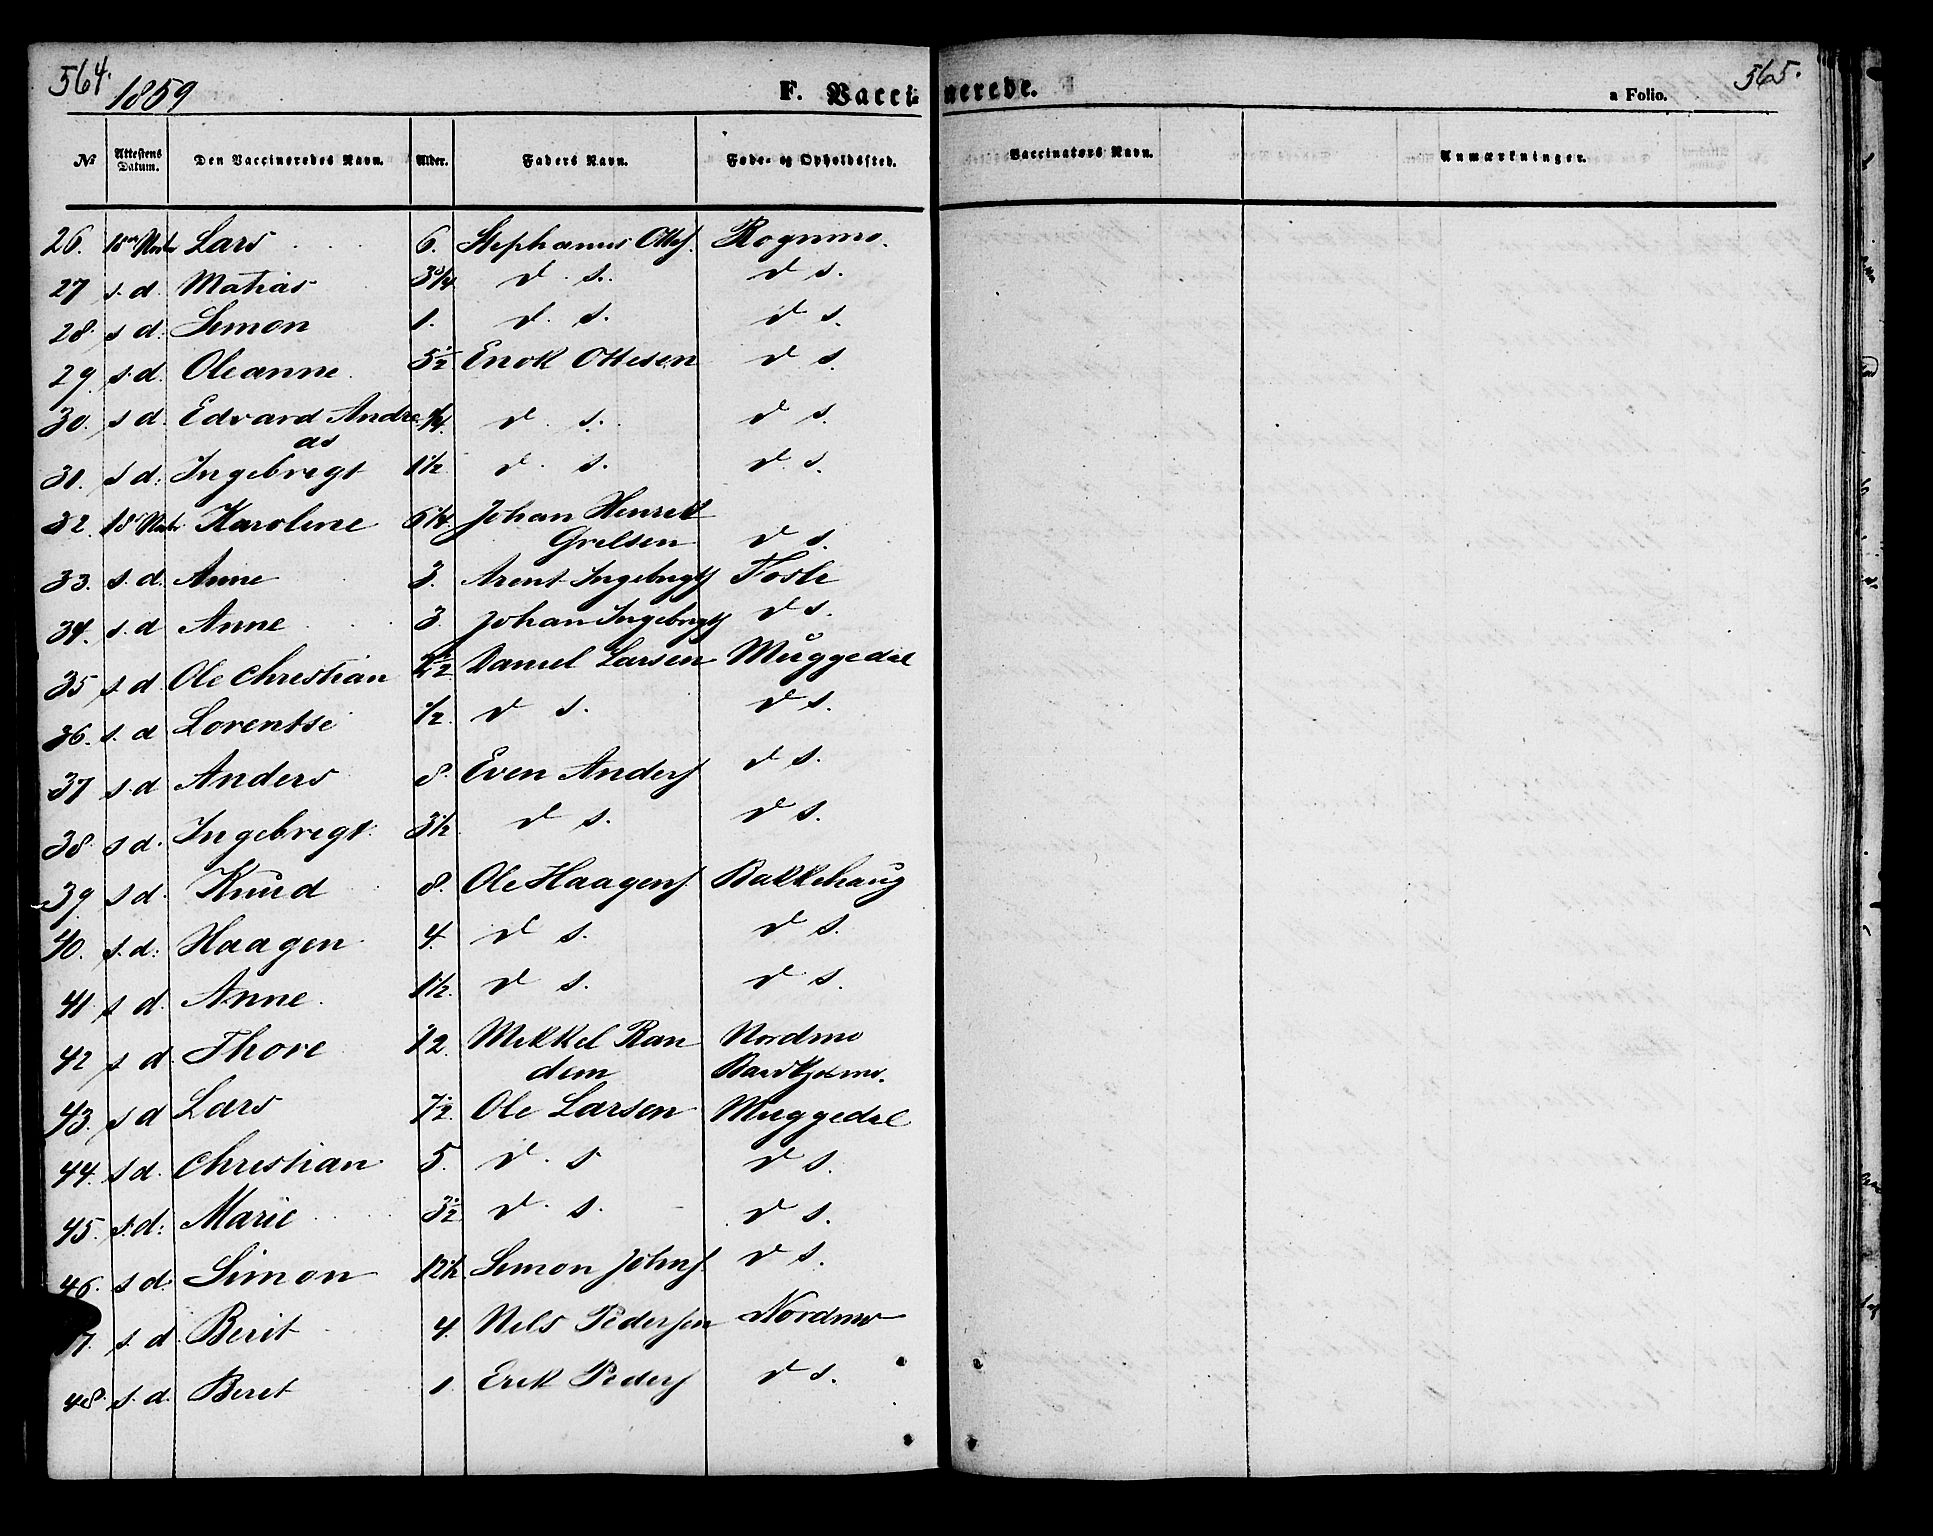 564.
1859
F. Vacci-
nerede.
a Folio.
565.
№ Attestens Datum. Den Vaccineredes Navn. Alder. Faders Navn. Føde- og Opholdssted. Vaccinators Navn. Anmærkninger.
26. 18 Lars 6. Stephanus Ottes. Rognmo.
27 s. d. Matias 3 3/4 d. s. d s.
28. s d: Simon 1. d. s. d s.
29. s. d. Oleanne 5 1/2 Enok Ottesen d s
30. s d. Edvard Andre d. s. d s.
as
31. s d: Ingebregt 1 1/2. d. s. d. s.
32. 18 Karoline 6 1/4. Johan Henrek
Grelsen d s.
33. s. d. Anne 3. Arent Ingebrigts Fosli
34. s. d Anne 3. Johan Ingebrigts d s.
35 s. d. Ole Christian 2 1/2 Daniel Larsen Muggedal
36. s. d Lorentse 1/2. d s. d s.
37 s. d Anders 8. Even Anders d s.
38. s d. Ingebregt. 3 1/2 d s. d s.
39 s d. Knud 8. Ole Haagens. Bakkehaug
40. s. d: Haagen 4. d s. d s.
41 s d. Anne. 1 1/2. d s. d s.
42 s d. Thore 12. Mikkel Ran Nordmo
dem Bardkjosmo.
43. s d Lars 7 1/2. Ole Larsen Muggedal
44. s d. Christian 5. d. s d s.
45. s. d: Marie 3 1/2 d. s. d s.
46. s d. Simon 12 1/2. Simon Johns. d s.
7. s. d. Berit 4. Nils Pedersen Nordmo
48. s. d. Beret 1. Erik Peders d s.